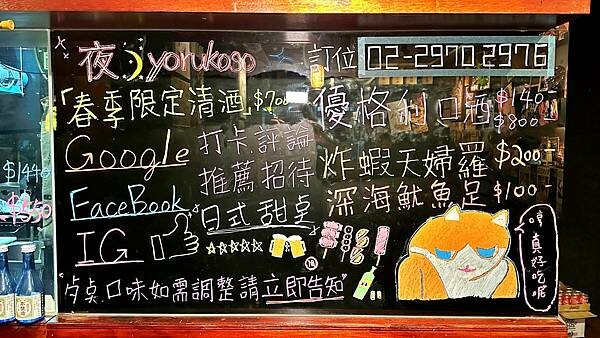 夜 yorukoso
訂位 02-2970 2976
「春季限定清酒」$700
優格利口酒 $140-
$800-
Google
打卡.評論
推薦招待
日式甜桌
炸蝦天婦羅 $200-
深海魷魚足 $100-
FaceBook
IG
哼真好吃喔
"桌口味如需調整請立即告知"
$1440
$350